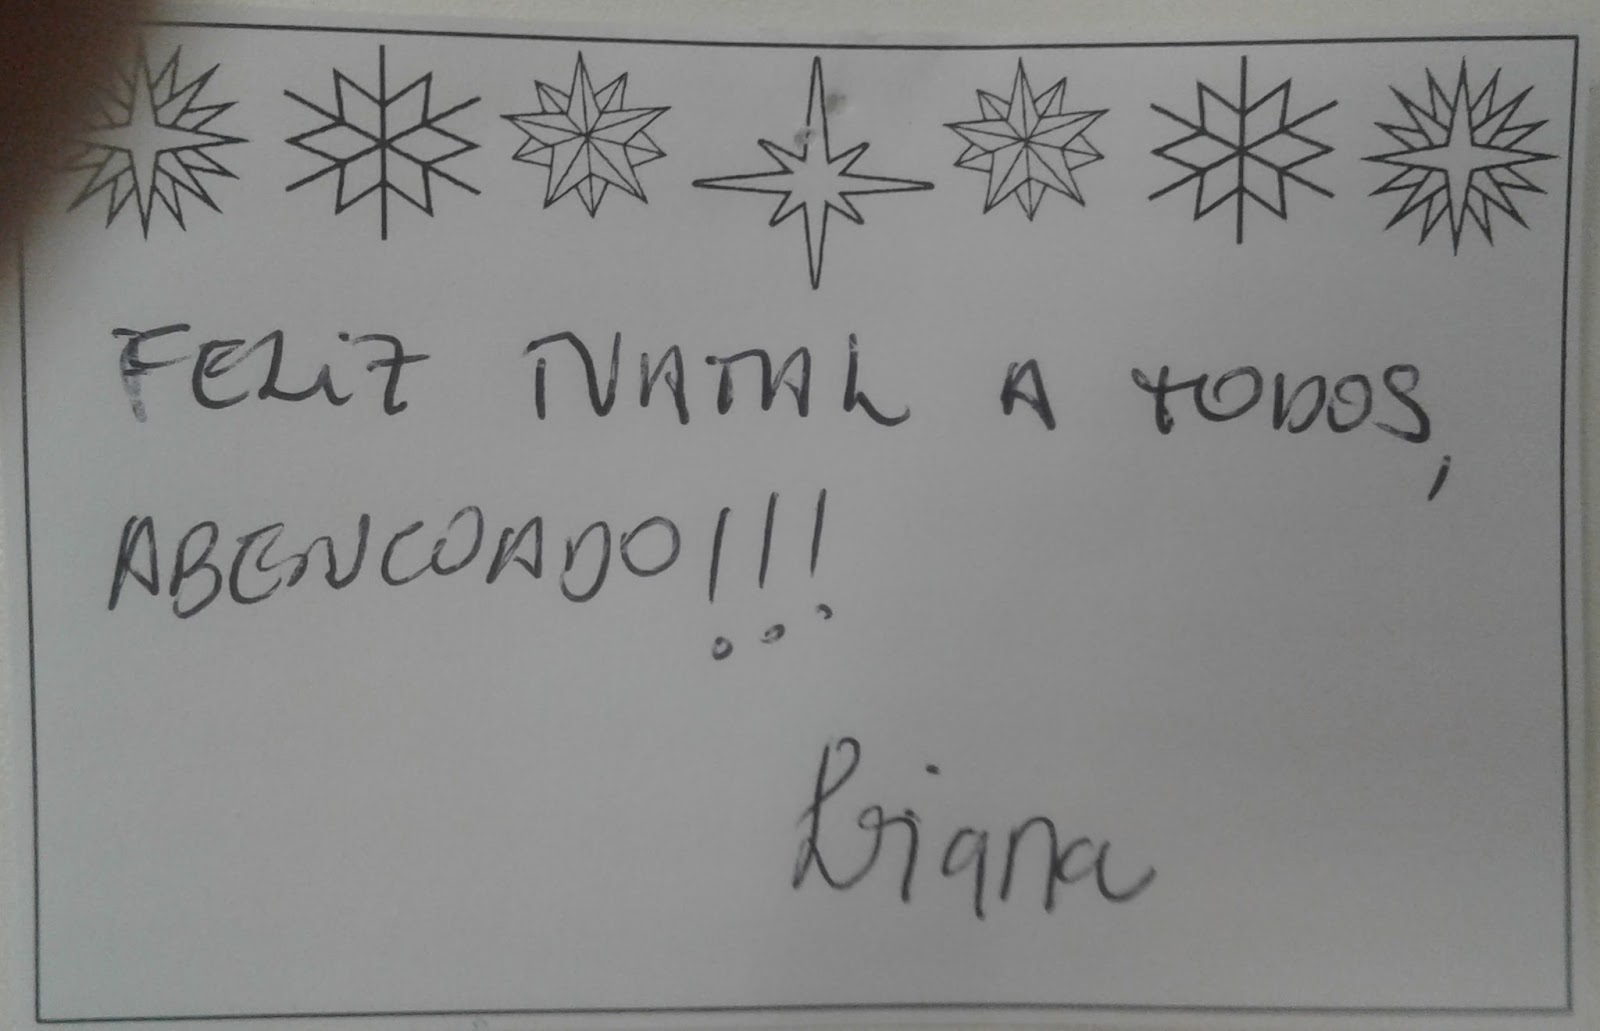 FELiZ NATAL A TODOS,
ABENCOADO!!!
Liana